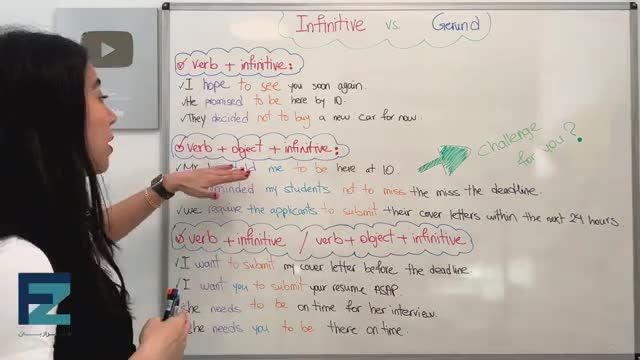 Infinitive vs. Gerund
verb + infinitive:
I hope to see you soon again.
He promised to be here by 10.
They decided not to buy a new car for now.
verb + object + infinitive:
told me to be here at 10.
reminded my students not to miss the miss the deadline.
we require the applicants to submit their cover letters within the next 24 hours.
challenge
for you?
verb + infinitive / verb + object + infinitive
I want to submit my cover letter before the deadline.
I want you to submit your resume ASAP.
She needs to be on time for her interview.
She needs you to be there on time.
FZ